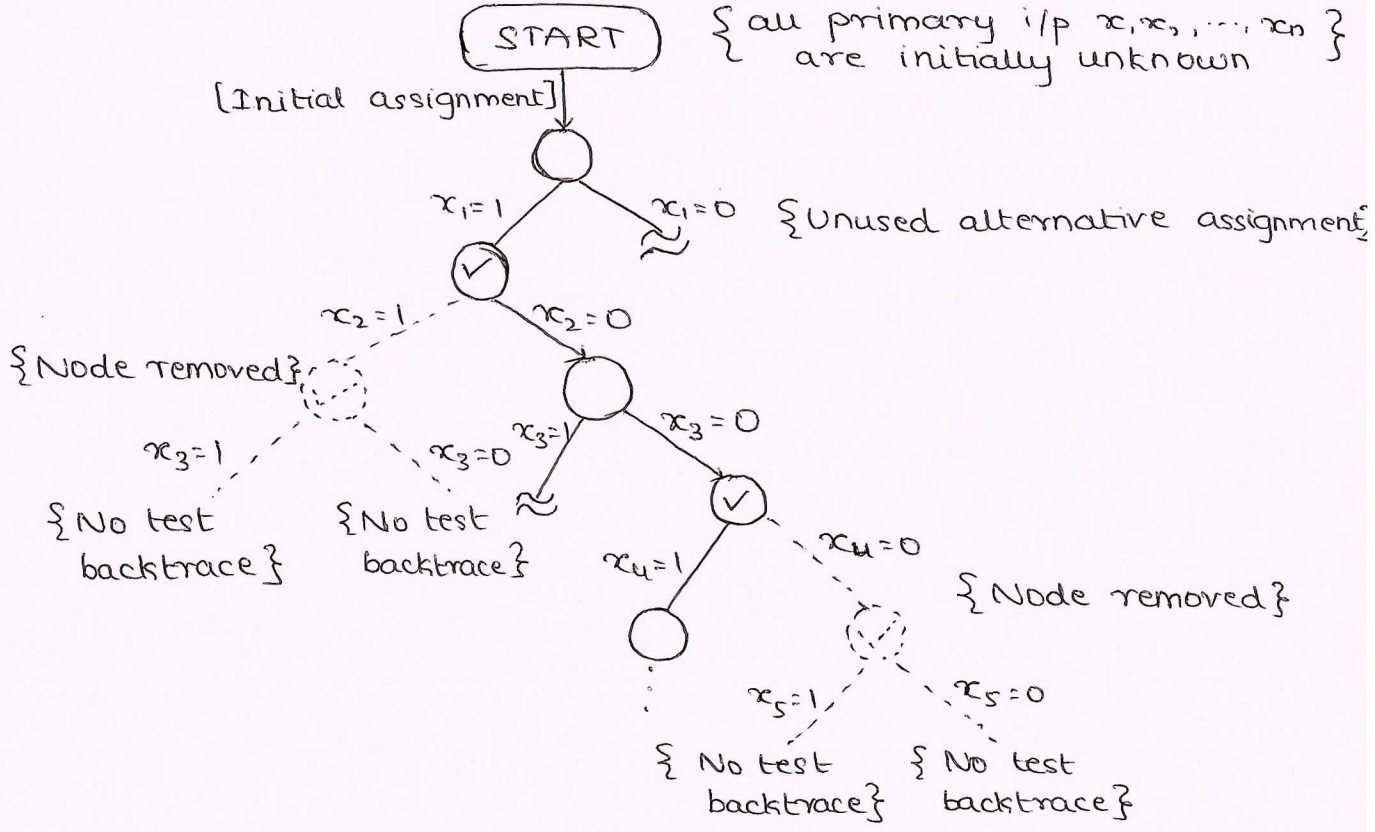 START
{ all primary i/p x₁x₂, ..., xn }
are initially unknown
[Initial assignment]
x₁=1
x₁=0
{Unused alternative assignment}
x₂=1
x₂=0
{Node removed}
x₃=1
x₃=0
x₃=1
x₃=0
{No test
backtrace}
{No test
backtrace}
x₄=1
x₄=0
{Node removed}
x₅=1
x₅=0
{ No test
backtrace}
{ No test
backtrace}